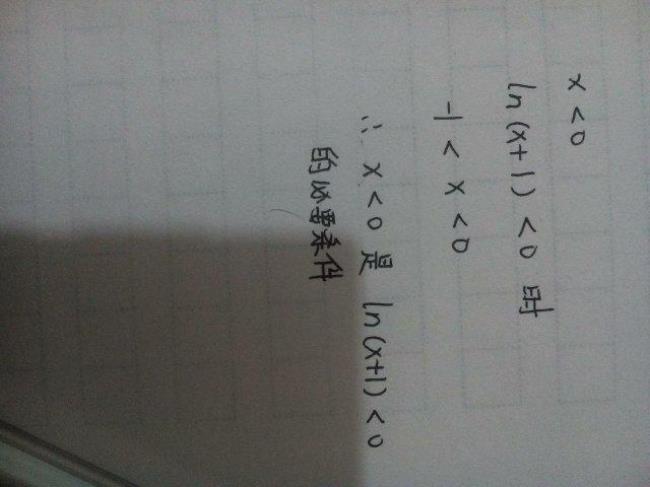 x<0
ln(x+1)<0时
-1<x<0
∴ x<0是ln(x+1)<0
的必要条件